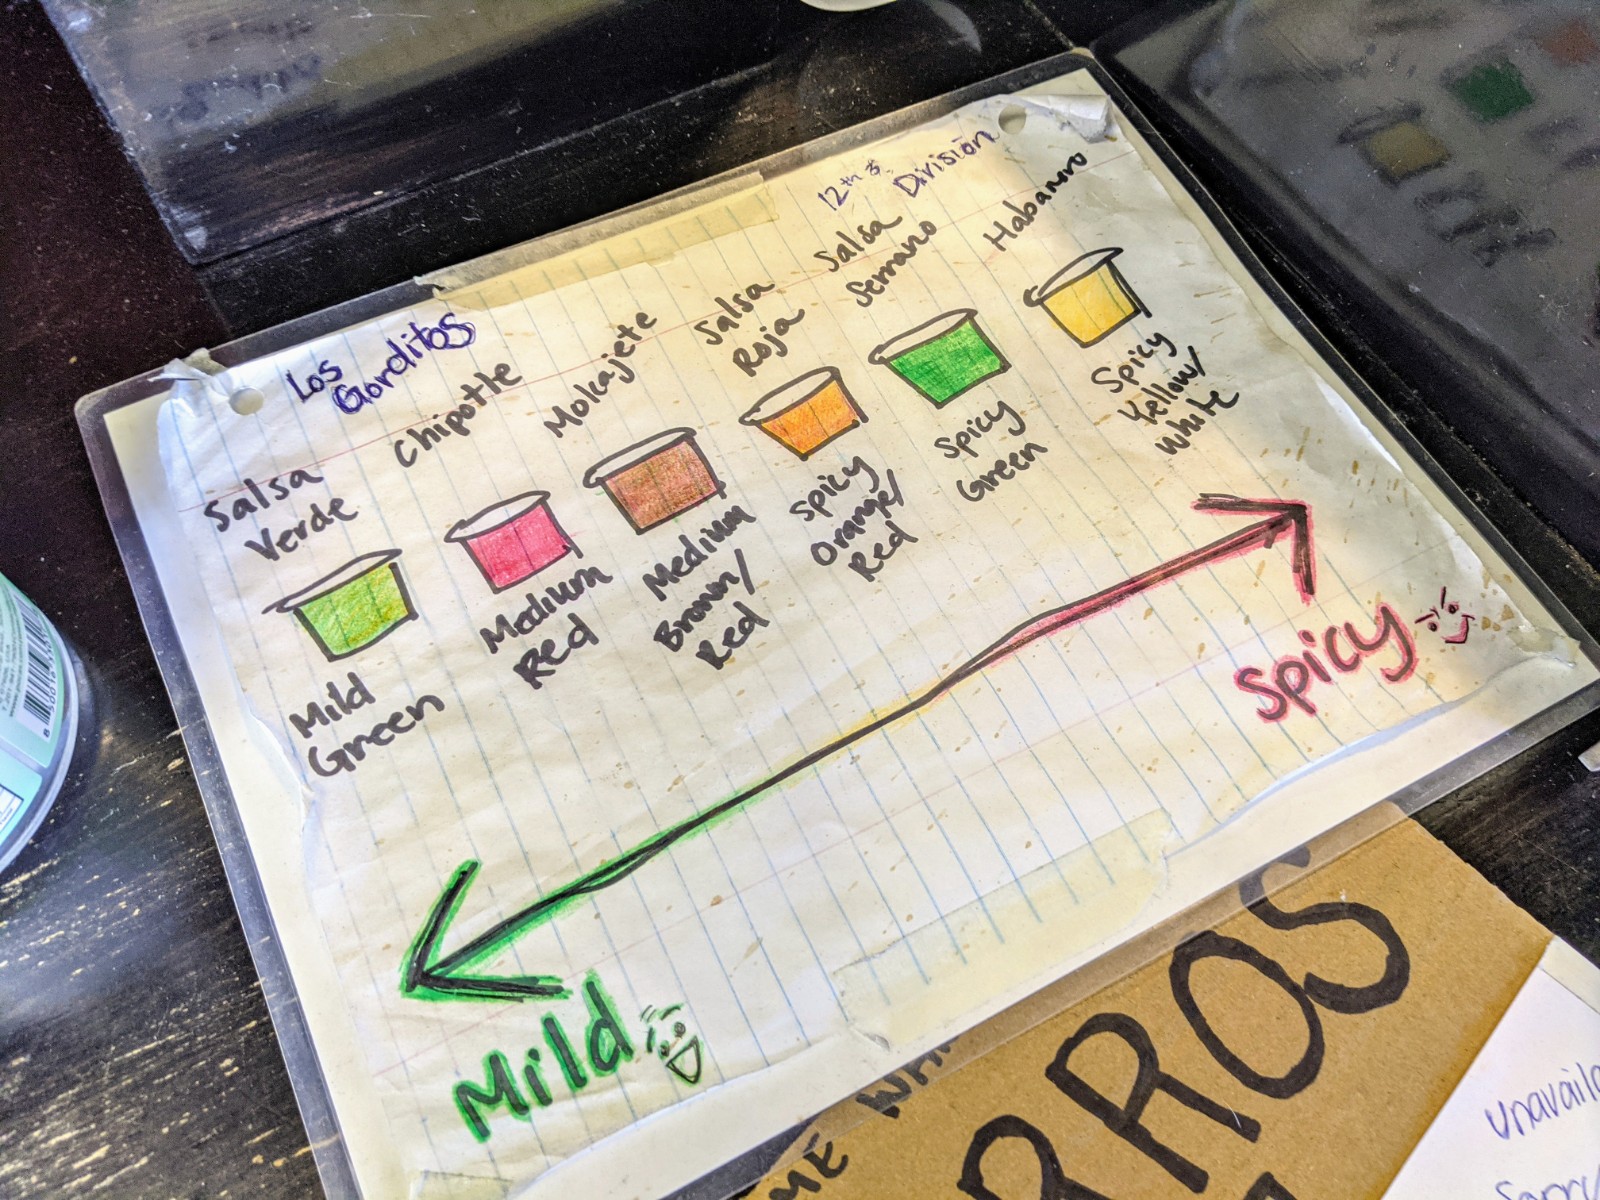 Los
Gorditos
12th &
Division
Salsa
Verde
Mild
Green
Chipotle
Medium
Red
Molcajete
Medium
Brown/
Red
Salsa
Roja
Spicy
Orange/
Red
Salsa
Serrano
Spicy
Green
Habanero
Spicy
Yellow/
White
Spicy
Mild